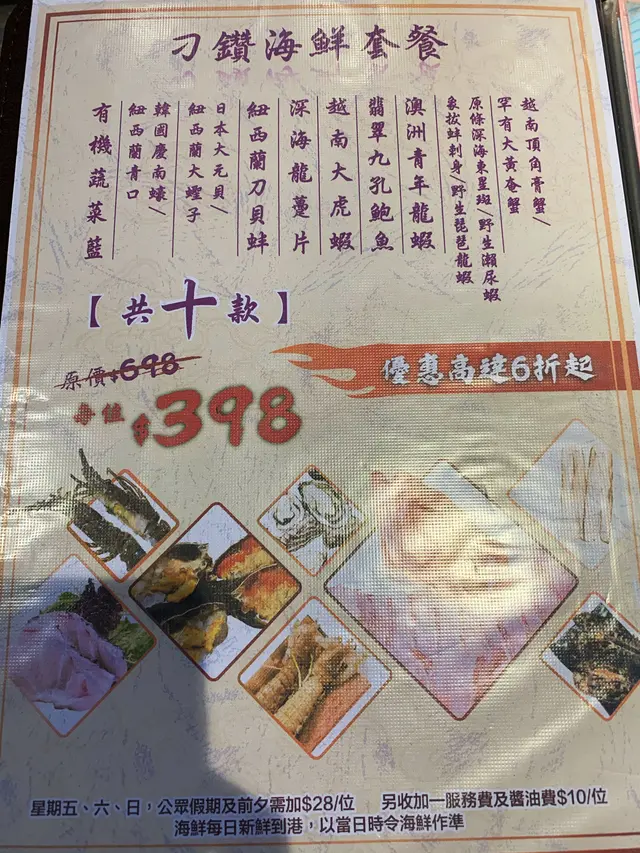 刁鑽海鮮套餐
越南頂角膏蟹/
罕有大黃奄蟹
原條深海東星斑/野生瀨尿蝦
象拔蚌刺身/野生琵琶龍蝦
澳洲青年龍蝦
翡翠九孔鮑魚
越南大虎蝦
深海龍躉片
紐西蘭刀貝蚌
日本大元貝/
紐西蘭大蟶子
韓國慶南蠔/
紐西蘭青口
有機蔬菜籃
【共十款】
原價$698
優惠高達6折起
每位$398
星期五、六、日，公眾假期及前夕需加$28/位 另收加一服務費及醬油費$10/位
海鮮每日新鮮到港，以當日時令海鮮作準